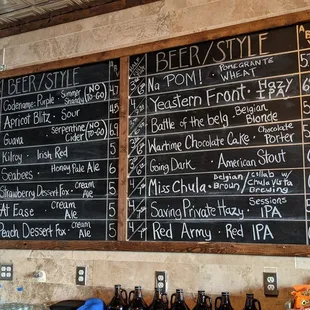 BEER/STYLE
Codename: Purple · Summer Shandy (NO TO-GO)
Apricot Blitz · Sour
Guava · Serpentine Cider (NO TO-GO)
Kilroy · Irish Red
Seabees · Honey Pale Ale
Strawberry Dessert Fox · Cream Ale
At Ease · Cream Ale
Peach Dessert Fox · Cream Ale
BEER/STYLE
Na POM! · Pomegranate Wheat
Yeastern Front · Hazy IPA
Battle of the belg · Belgian Blonde
Wartime Chocolate Cake · Chocolate Porter
Going Dark · American Stout
Miss Chula · Belgian Brown (Collab w/ Chula Vista Brewing
Saving Private Hazy · Sessions IPA
Red Army · Red IPA